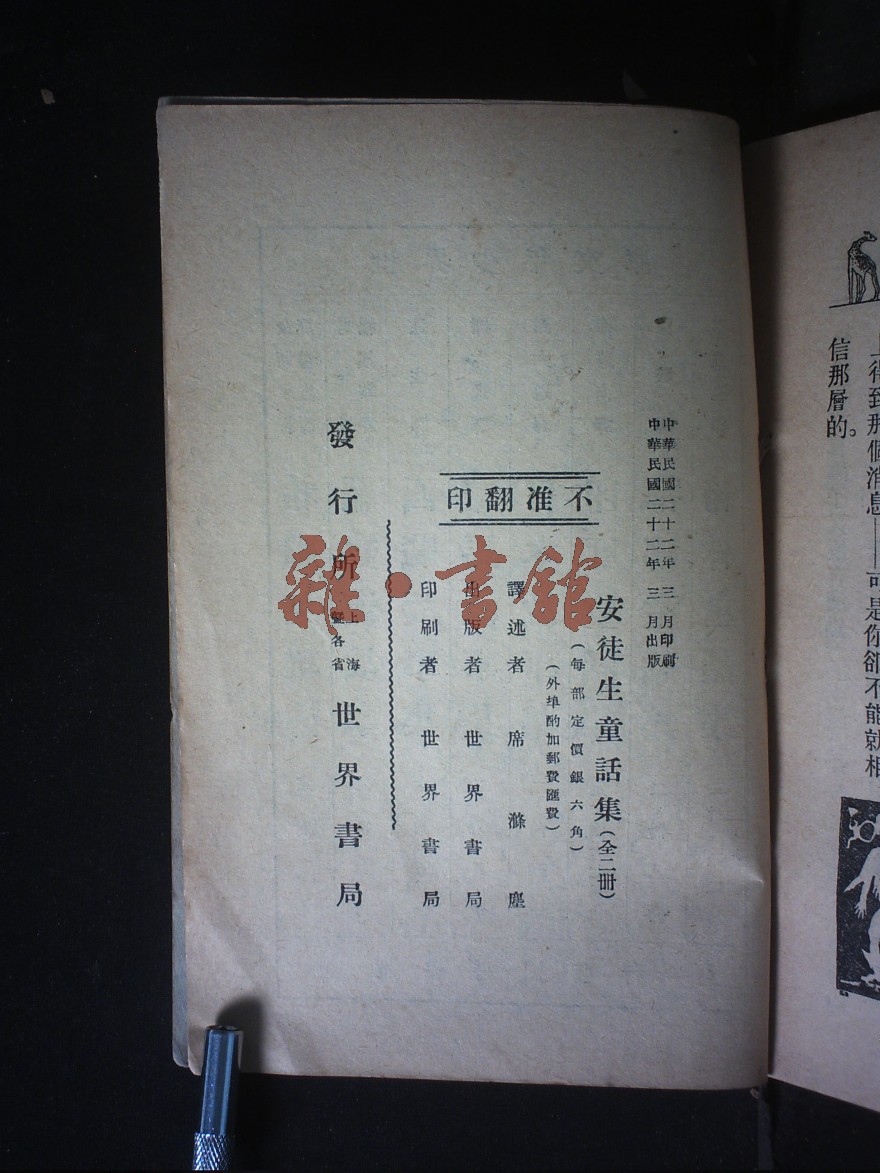 中華民國二十二年三月印刷
中華民國二十二年三月出版
安徒生童話集(全二冊)
(每部定價銀六角)
(外埠酌加郵費匯費)
不准翻印
譯述者 席滌塵
出版者 世界書局
印刷者 世界書局
發行所 上海 各省 世界書局
雜·書館
上得到那個消息——可是你卻不能就相
信那層的。